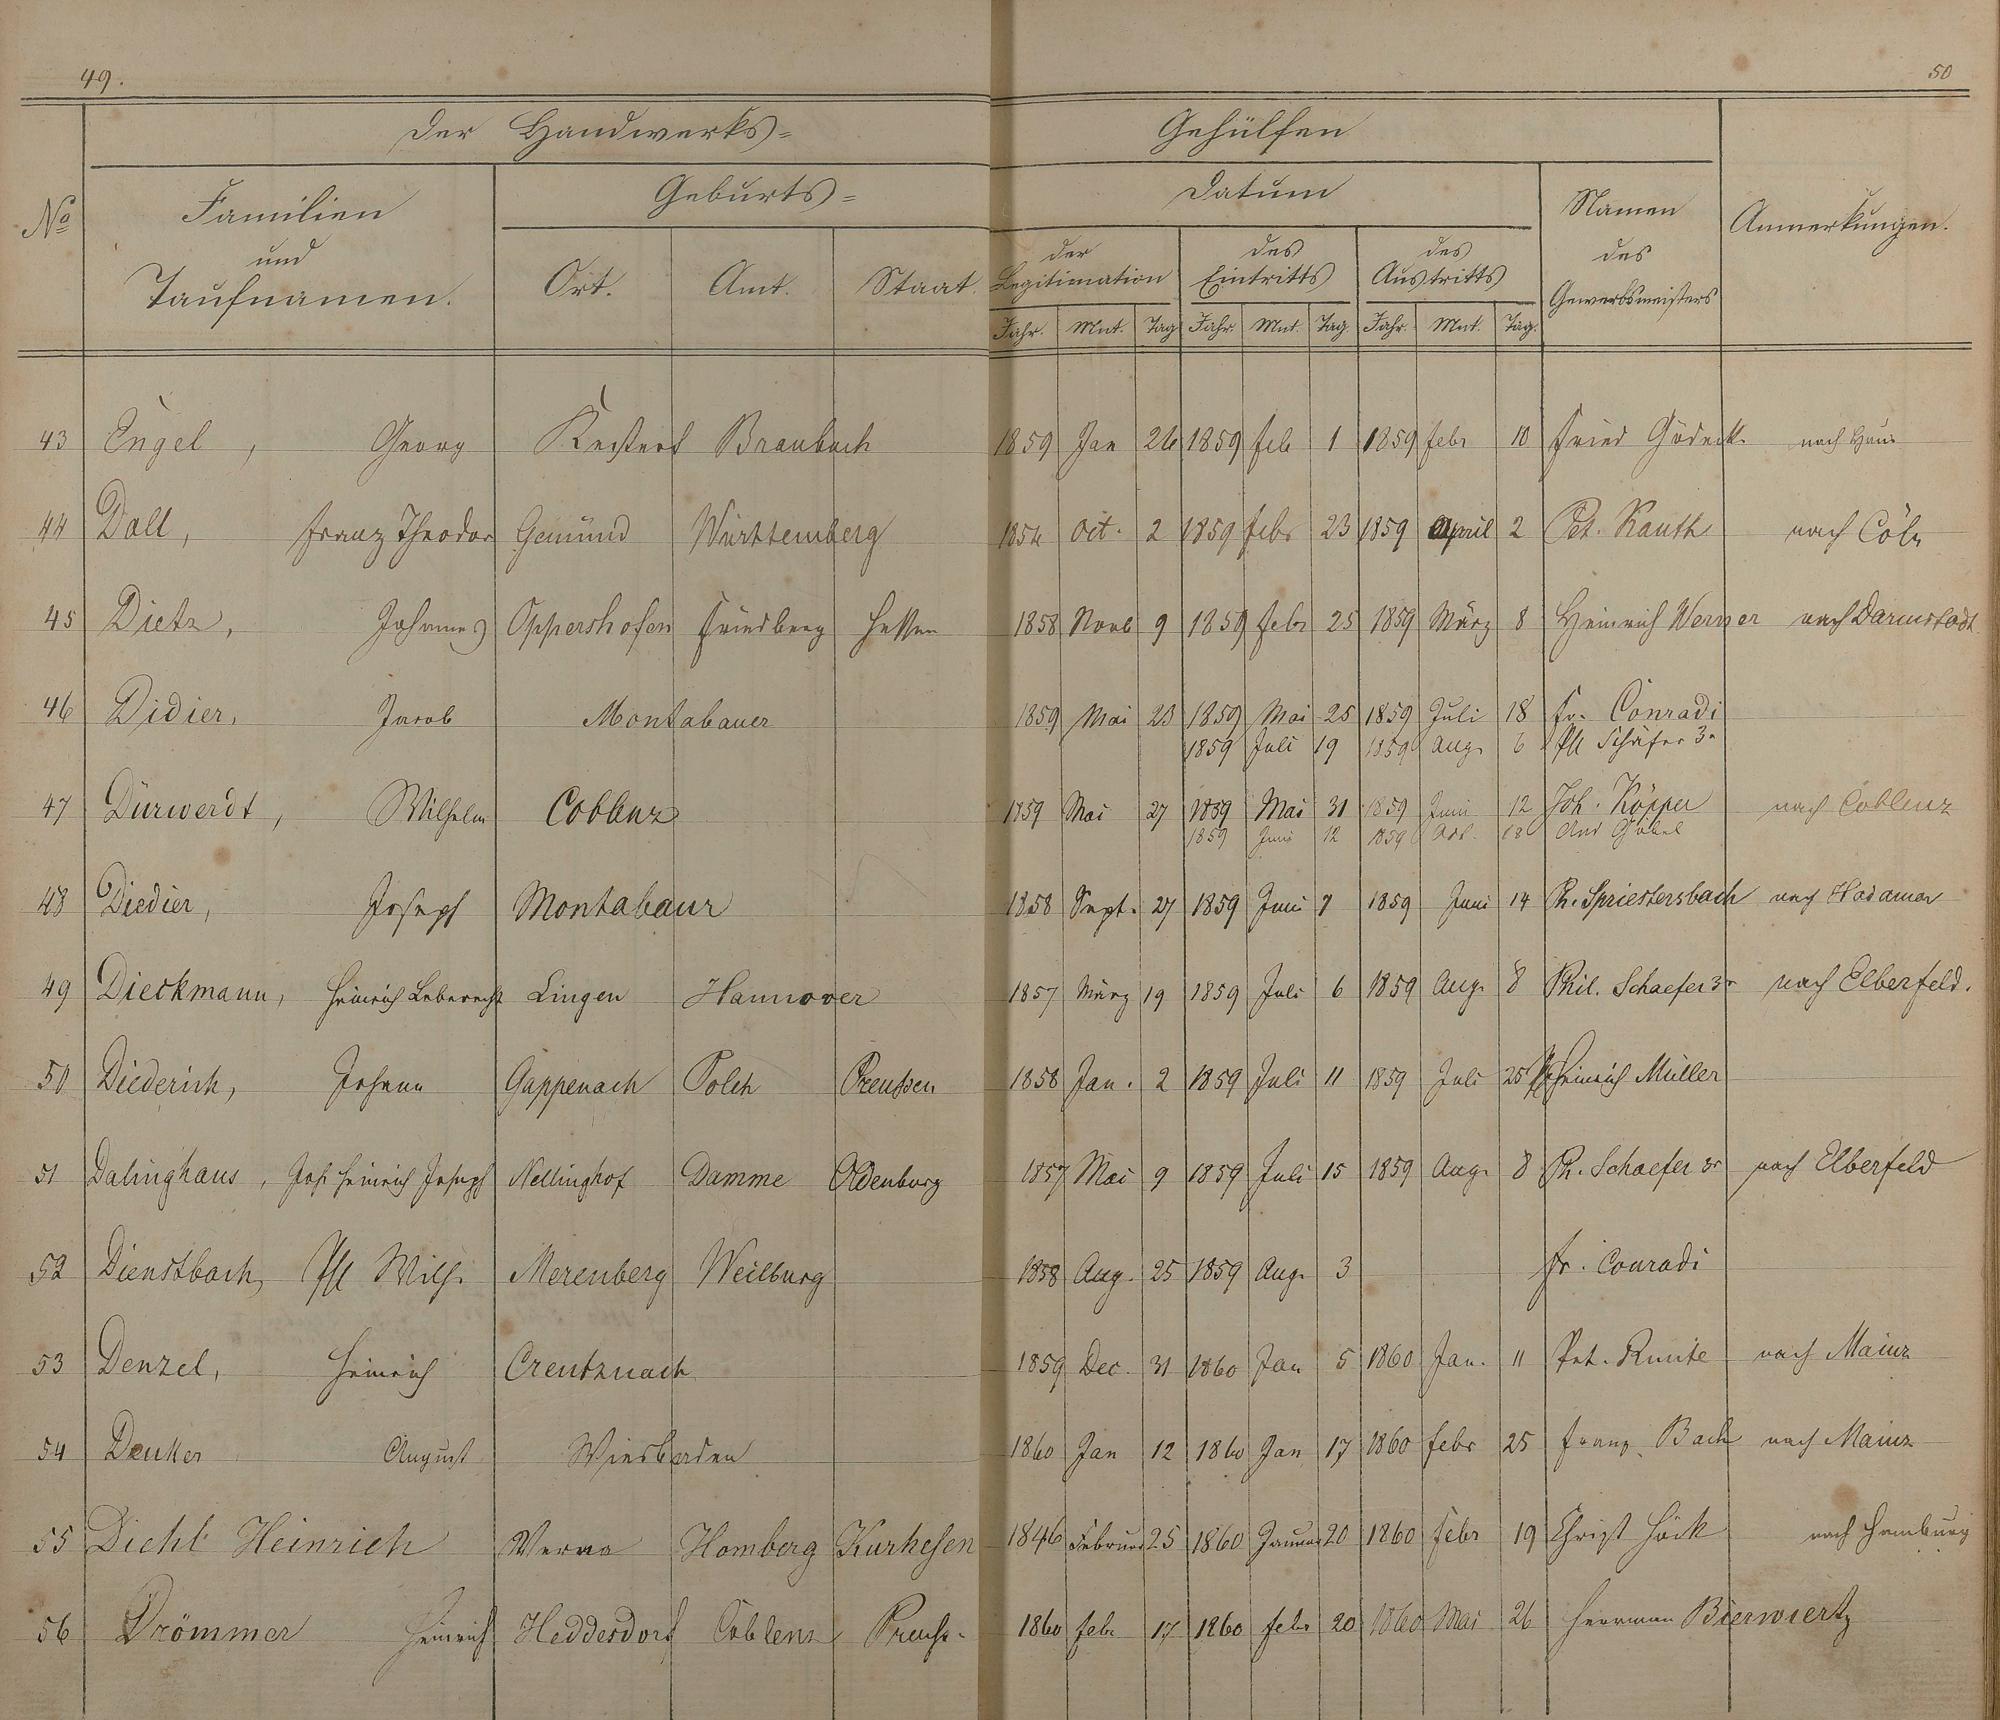 49.
50
der Handwerks= Gehülfen
No
Familien
und
Taufnamen.
Geburts=
Ort. Amt. Staat.
Datum
der
Legitimation
des
Eintritts
des
Austritts
Jahr. Mnt. Tag Jahr. Mnt. Tag Jahr. Mnt. Tag.
Namen
des
Gewerbsmeisters
Anmerkungen.
43 Engel, Georg Braubach 1859 Jan 26 1859 feb 1 1859 febr 10 Fried nach Haus
44 Doll, Franz Theodor Gemünd Württemberg 1854 Oct. 2 1859 febr 23 1859 April 2 Pet. Kauth nach Cöln
45 Dietz, Johannes Oppershofen Friedberg Hessen 1858 Novb 9 1859 febr 25 1859 März 8 Heinrich Werner nach Darmstadt
46 Didier, Jacob Montabauer 1859 Mai 23 1859 Mai 25 1859 Juli 18 Fr. Conradi
1859 Juli 19 1859 Aug. 6 Phl Schäfer 3r
47 Dürwerdt, Wilhelm Coblenz 1859 Mai 27 1859 Mai 31 1859 Juni 12 Joh. Köpper nach Coblenz
1859 Juni 12 1859 18 And Göbel
48 Diedier, Joseph Montabaur 1858 Sept. 27 1859 Juni 7 1859 Juni 14 Ph. Spriestersbach nach Hadamar
49 Dieckmann, Heinrich Leberecht Lingen Hannover 1857 März 19 1859 Juli 6 1859 Aug. 8 Phil. Schaefer 3r nach Elberfeld.
50 Diederich, Johann Gappenach Polch Preußen 1858 Jan. 2 1859 Juli 11 1859 Juli 25 Heinrich Müller
51 Dalinghaus, Joh Heinrich Joseph Nellinghof Damme Oldenburg 1857 Mai 9 1859 Juli 15 1859 Aug. 8 Ph. Schaefer 3r nach Elberfeld
52 Dienstbach, Phl Wilh. Merenberg Weilburg 1858 Aug. 25 1859 Aug. 3 Fr. Conradi
53 Denzel, Heinrich Creutznach 1859 Dec. 31 1860 Jan 5 1860 Jan. 11 Pet. nach Mainz
54 Denker August Wiesbaden 1860 Jan 12 1860 Jan 17 1860 febr 25 Franz Bach nach Mainz
55 Diehl Heinrich Verna Homberg Kurheßen 1846 Februar 25 1860 Januar 20 1860 febr 19 Christ Höck nach Homburg
56 Drömmer Heinrich Heddesdorf Coblenz Preuß. 1860 febr 17 1860 febr 20 1860 Mai 26 Herrman Bierwiertz